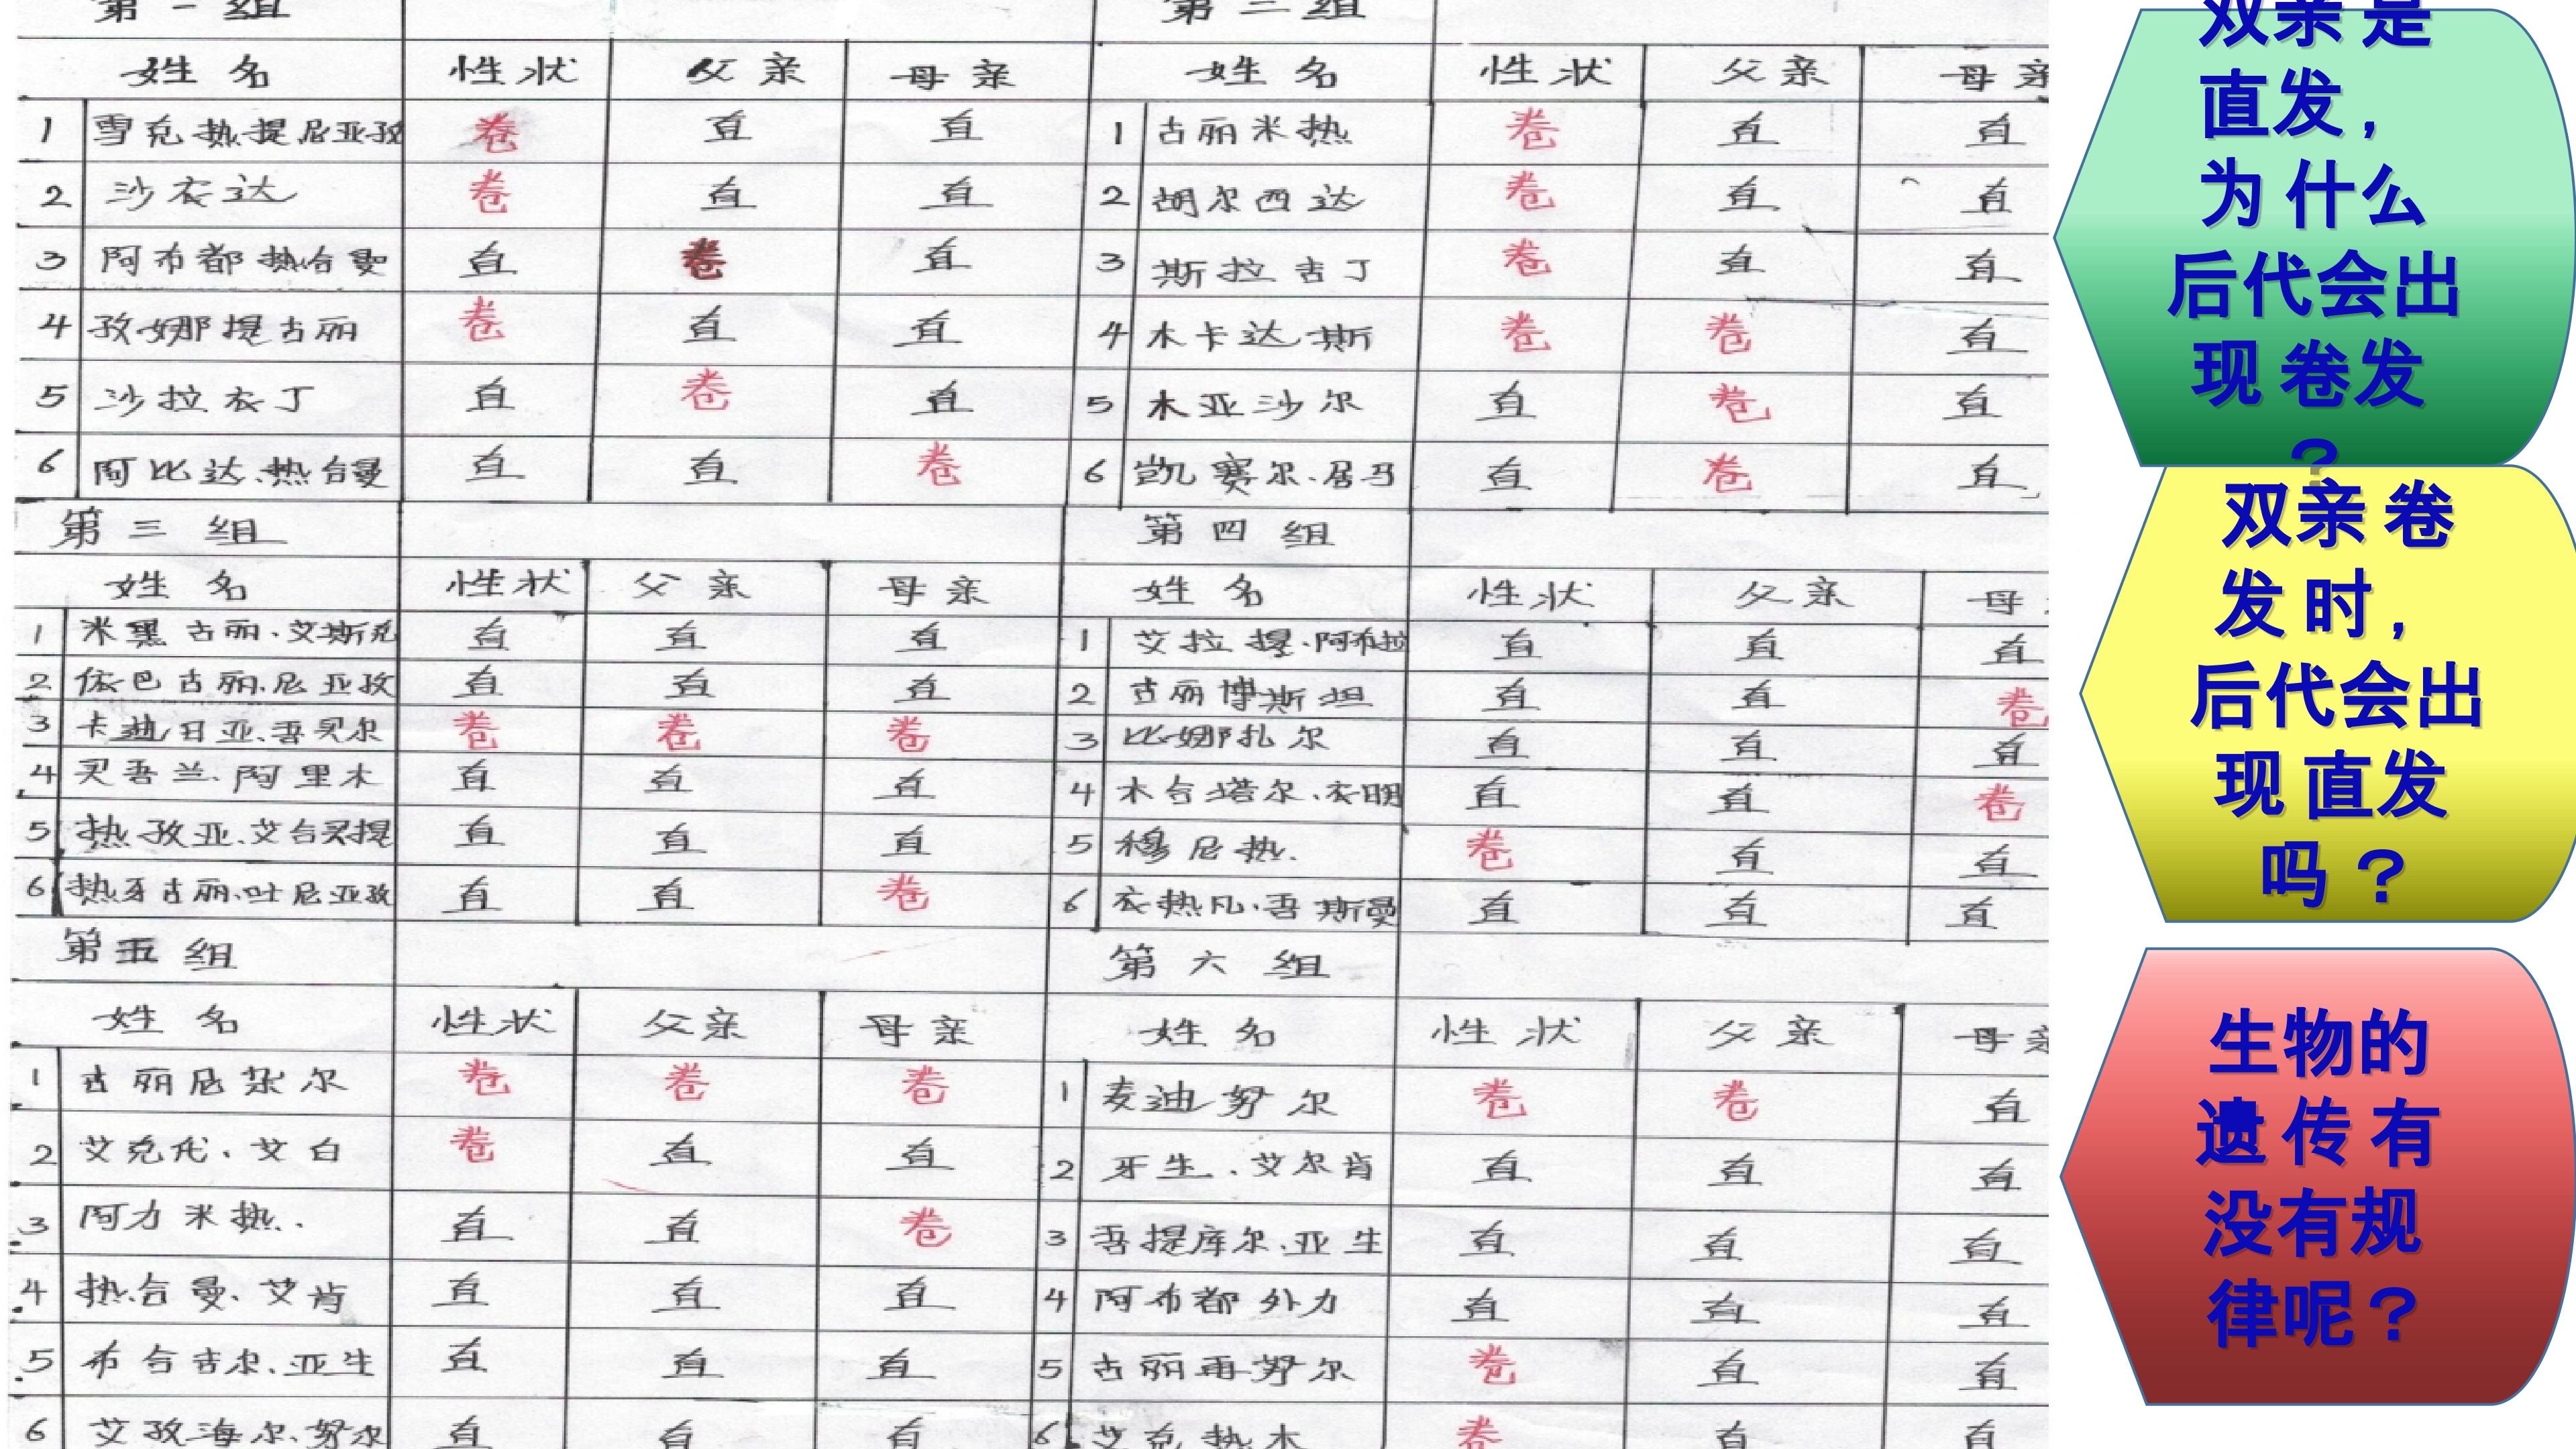 第一组
姓名 性状 父亲 母亲
1 雪克热提尼亚孜 卷 直 直
2 沙衣达 卷 直 直
3 阿布都热合曼 直 卷 直
4 孜娜提古丽 卷 直 直
5 沙拉衣丁 直 卷 直
6 阿比达.热合曼 直 直 卷
第二组
姓名 性状 父亲 母亲
1 古丽米热 卷 直 直
2 胡尔西达 卷 直 直
3 斯拉吉丁 卷 直 直
4 木卡达斯 卷 卷 直
5 木亚沙尔 直 卷 直
6 凯赛尔.居马 直 卷 直
第三组
姓名 性状 父亲 母亲
1 米黑古丽.艾斯克 直 直 直
2 依巴古丽.尼亚孜 直 直 直
3 卡迪日亚.吾买尔 卷 卷 卷
4 买吾兰.阿里木 直 直 直
5 热孜亚.艾合买提 直 直 直
6 热牙古丽.吐尼亚孜 直 直 卷
第四组
姓名 性状 父亲 母
1 艾拉提.阿布拉 直 直 直
2 古丽博斯坦 直 直 卷
3 比娜扎尔 直 直 直
4 木合塔尔.衣明 直 直 卷
5 穆尼热. 卷 直 直
6 衣热凡.吾斯曼 直 直 直
第五组
姓名 性状 父亲 母亲
1 古丽尼杂尔 卷 卷 卷
2 艾克代.艾白 卷 直 直
3 阿力米热. 直 直 卷
4 热合曼.艾肯 直 直 直
5 布合吉尔.亚生 直 直 直
6 艾孜海尔.努尔 直 直 直
第六组
姓名 性状 父亲 母亲
1 麦迪努尔 卷 卷 直
2 牙生.艾尔肯 直 直 直
3 吾提库尔.亚生 直 直 直
4 阿布都外力 直 直 直
5 古丽再努尔 卷 直 直
6 艾克热木 卷 直 直
双亲是
直发，
为什么
后代会出
现卷发
？
双亲卷
发时，
后代会出
现直发
吗？
生物的
遗传有
没有规
律呢？